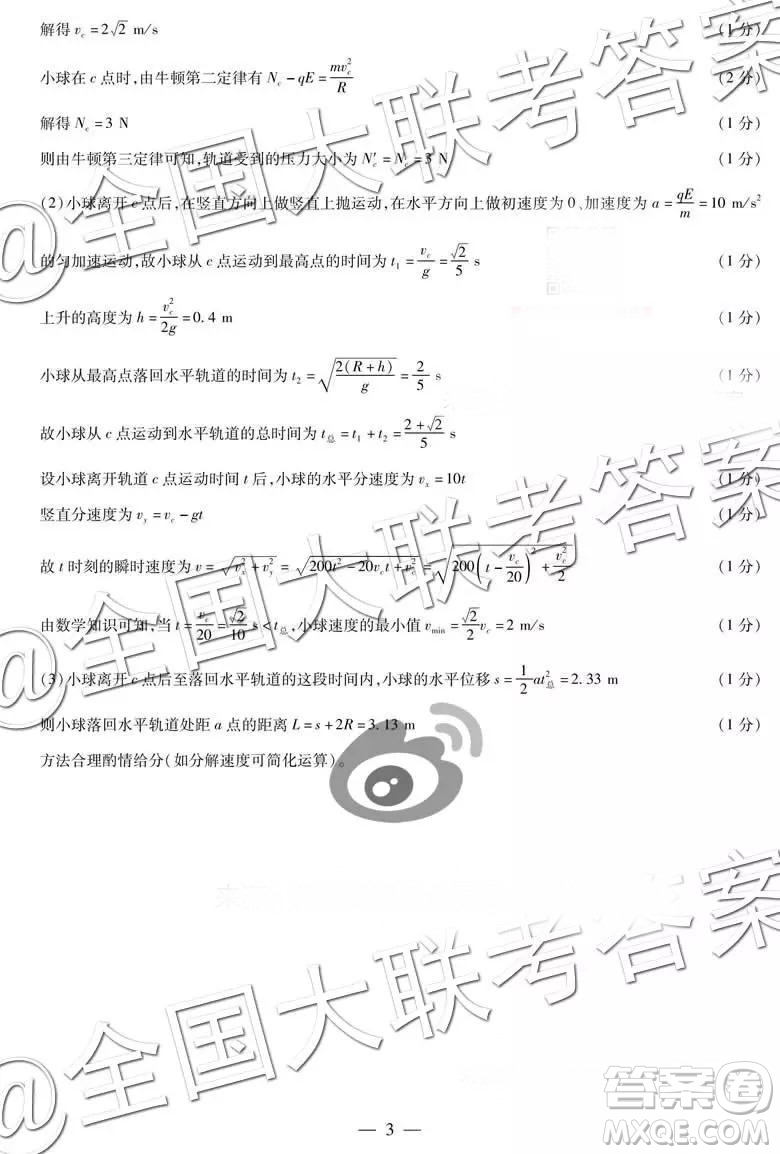 解得 v_c = 2√2 m/s (1 分)
小球在 c 点时,由牛顿第二定律有 N_c - qE = mv_c²/R (2 分)
解得 N_c = 3 N (1 分)
则由牛顿第三定律可知,轨道受到的压力大小为 N_c' = N_c = 3 N (1 分)
(2)小球离开 c 点后,在竖直方向上做竖直上抛运动,在水平方向上做初速度为 0、加速度为 a = qE/m = 10 m/s²
的匀加速运动,故小球从 c 点运动到最高点的时间为 t₁ = v_c/g = √2/5 s (1 分)
上升的高度为 h = v_c²/2g = 0.4 m (1 分)
小球从最高点落回水平轨道的时间为 t₂ = √(2(R+h)/g) = 2/5 s (1 分)
故小球从 c 点运动到水平轨道的总时间为 t_总 = t₁ + t₂ = (2+√2)/5 s (1 分)
设小球离开轨道 c 点运动时间 t 后,小球的水平分速度为 v_x = 10t (1 分)
竖直分速度为 v_y = v_c - gt (1 分)
故 t 时刻的瞬时速度为 v = √(v_x² + v_y²) = √(200t² - 20v_c t + v_c²) = √(200(t - v_c/20)² + v_c²/2) (1 分)
由数学知识可知,当 t = v_c/20 = √2/10 s < t_总,小球速度的最小值 v_min = (√2/2)v_c = 2 m/s (1 分)
(3)小球离开 c 点后至落回水平轨道的这段时间内,小球的水平位移 s = (1/2)at_总² = 2.33 m (1 分)
则小球落回水平轨道处距 a 点的距离 L = s + 2R = 3.13 m (1 分)
方法合理酌情给分(如分解速度可简化运算)。
@全国大联考答案
@全国大联考答案
@全国大联考答案
@全国大联考答案
答案卷
MXQE.COM
— 3 —